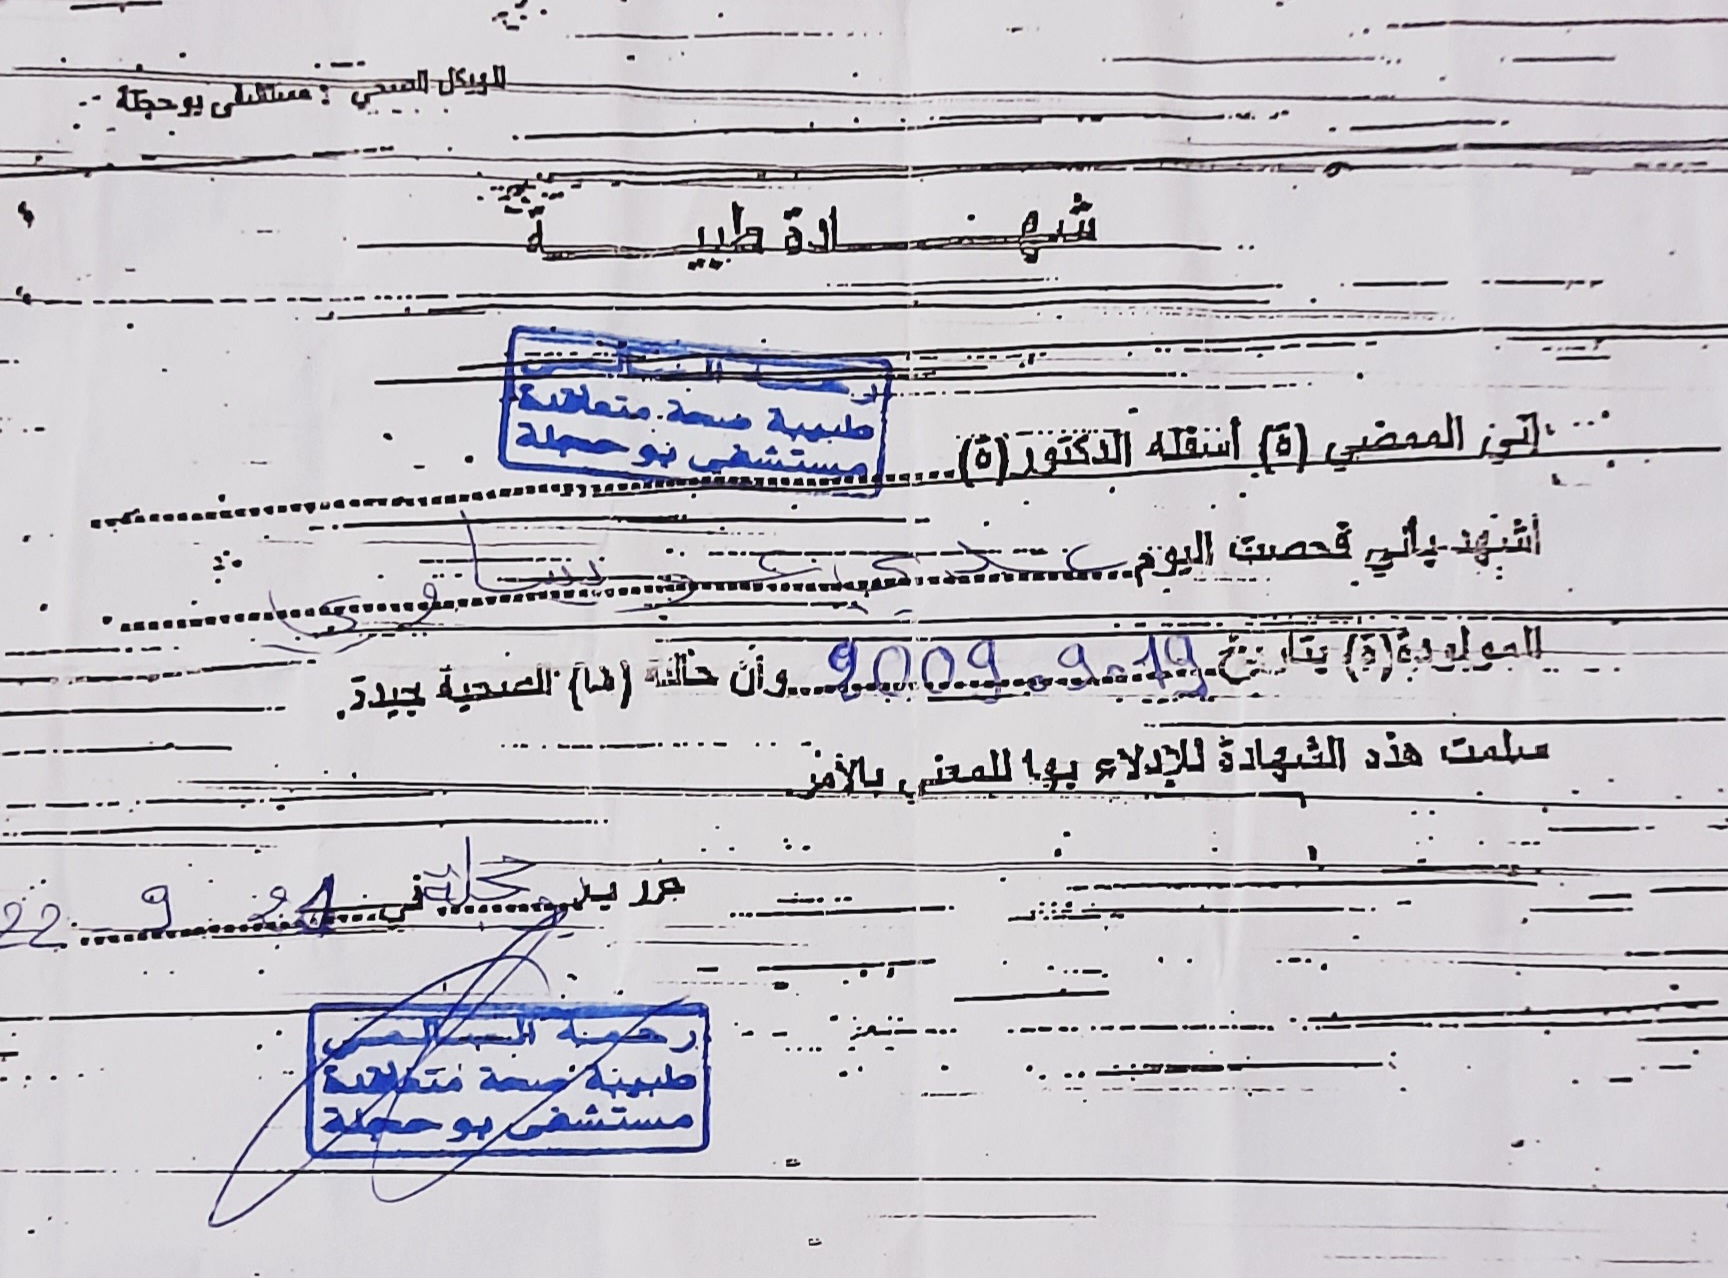 الهيكل الصحي : مستشفى بوحجلة
شهـــادة طبيـــة
طبيبة صحة متعاقدة
مستشفى بوحجلة
إني الممضي (ة) أسفله الدكتور(ة)
أشهد بأني فحصت اليوم
المولودة(ة) بتاريخ 19-9-2009 وأن حالته (ها) الصحية جيدة.
سلمت هذه الشهادة للإدلاء بها للمعني بالأمر
حرر بـ حجلة في 22 9
رحمة السالمي
طبيبة صحة متعاقدة
مستشفى بوحجلة